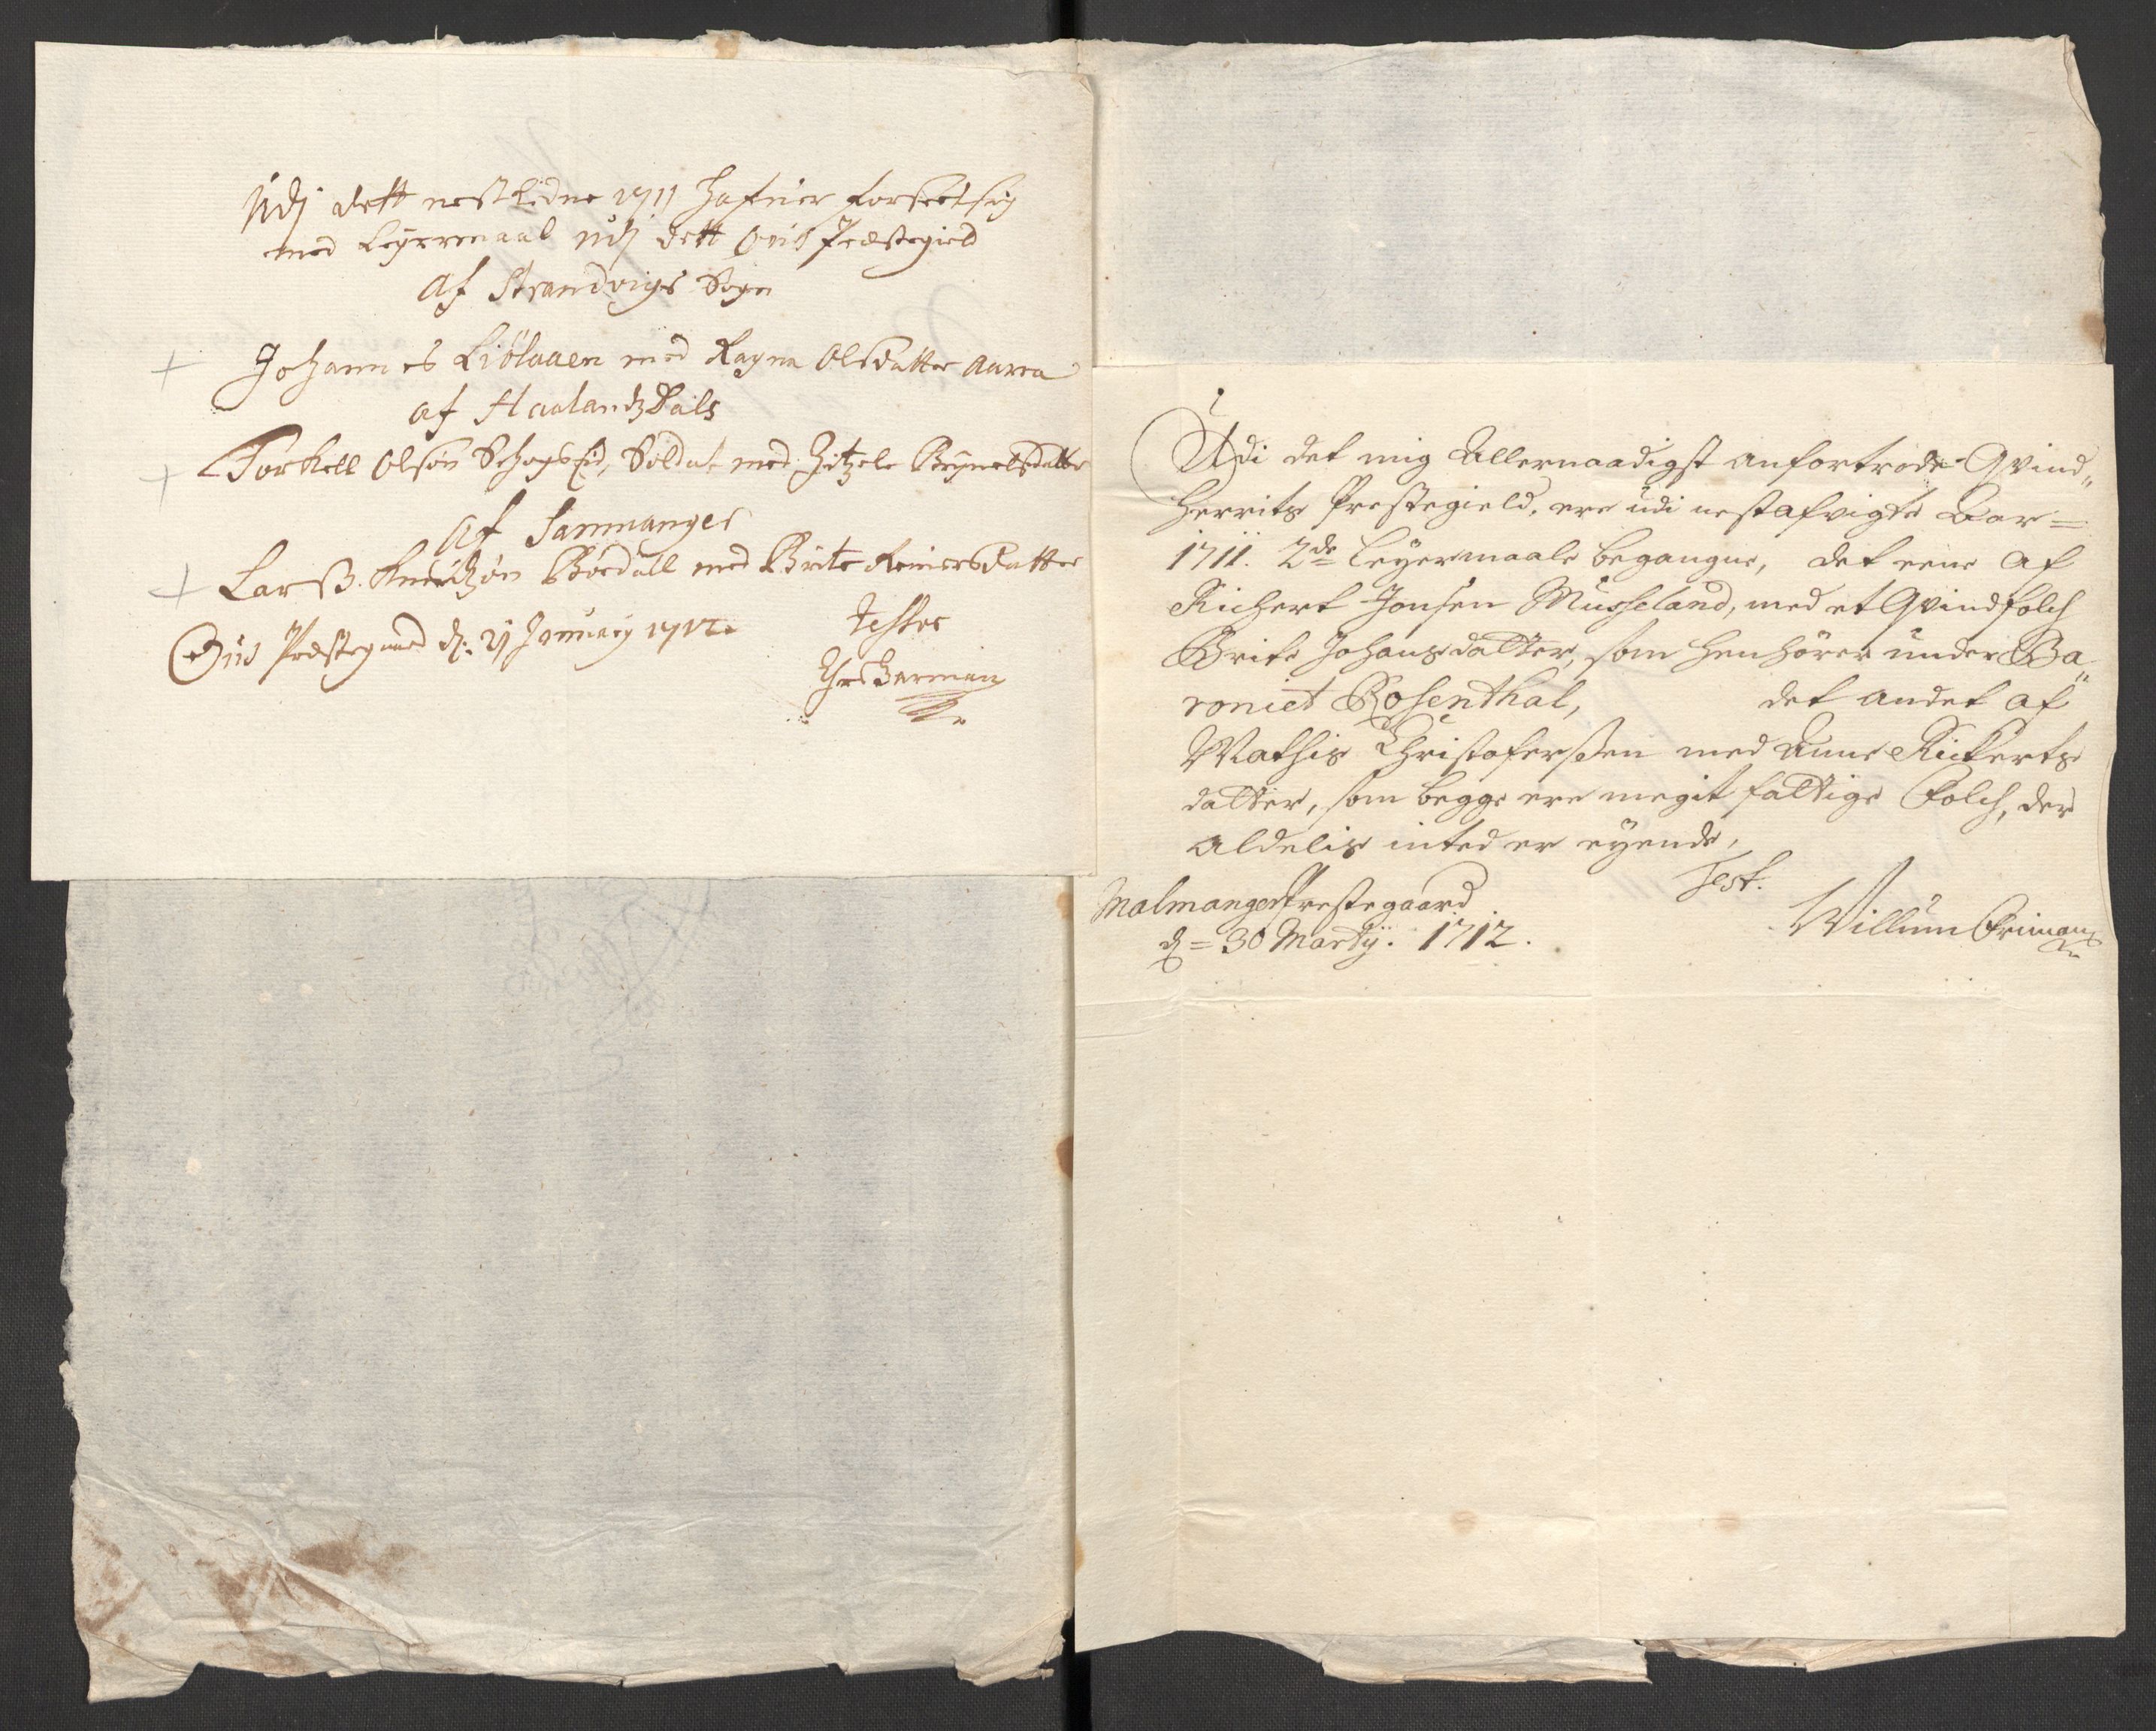 Udj dett nest lidne 1711 hafuer forseet sig
med Leyermaal udj dett Ouis Prestegield
af Strandvigs Sogn
Johannes Liölaaen med Ragna Olsdatter Aarra
af Haalandzdals
Torkell Olsøn Schogseid, Soldat med Zitzele Brynelsdatter
af Sammanger
Larss Knudtzøn Børdall med Brite Reiniersdatter
Ouis Præstegaard d: 21 January 1712.
testor
Udi det mig Allernaadigst anfortrode Qvind„
herrits Prestegield, ere udi nest afvigte Aar =
1711. 2de Leyermaale begangne, det eene af
Richert Jonsen Musseland, med et Qvindfolch
Brite Johansdatter, som henhører under Ba„
roniet Rosenthal, det andet af
Mathis Christofersen med Anne Rickerts
datter, som begge ere megit fattige Folch, der
aldelis inted er eyende,
Test.
Malmanger Prestegaard
d = 30 Martij. 1712.
Willum Frimann